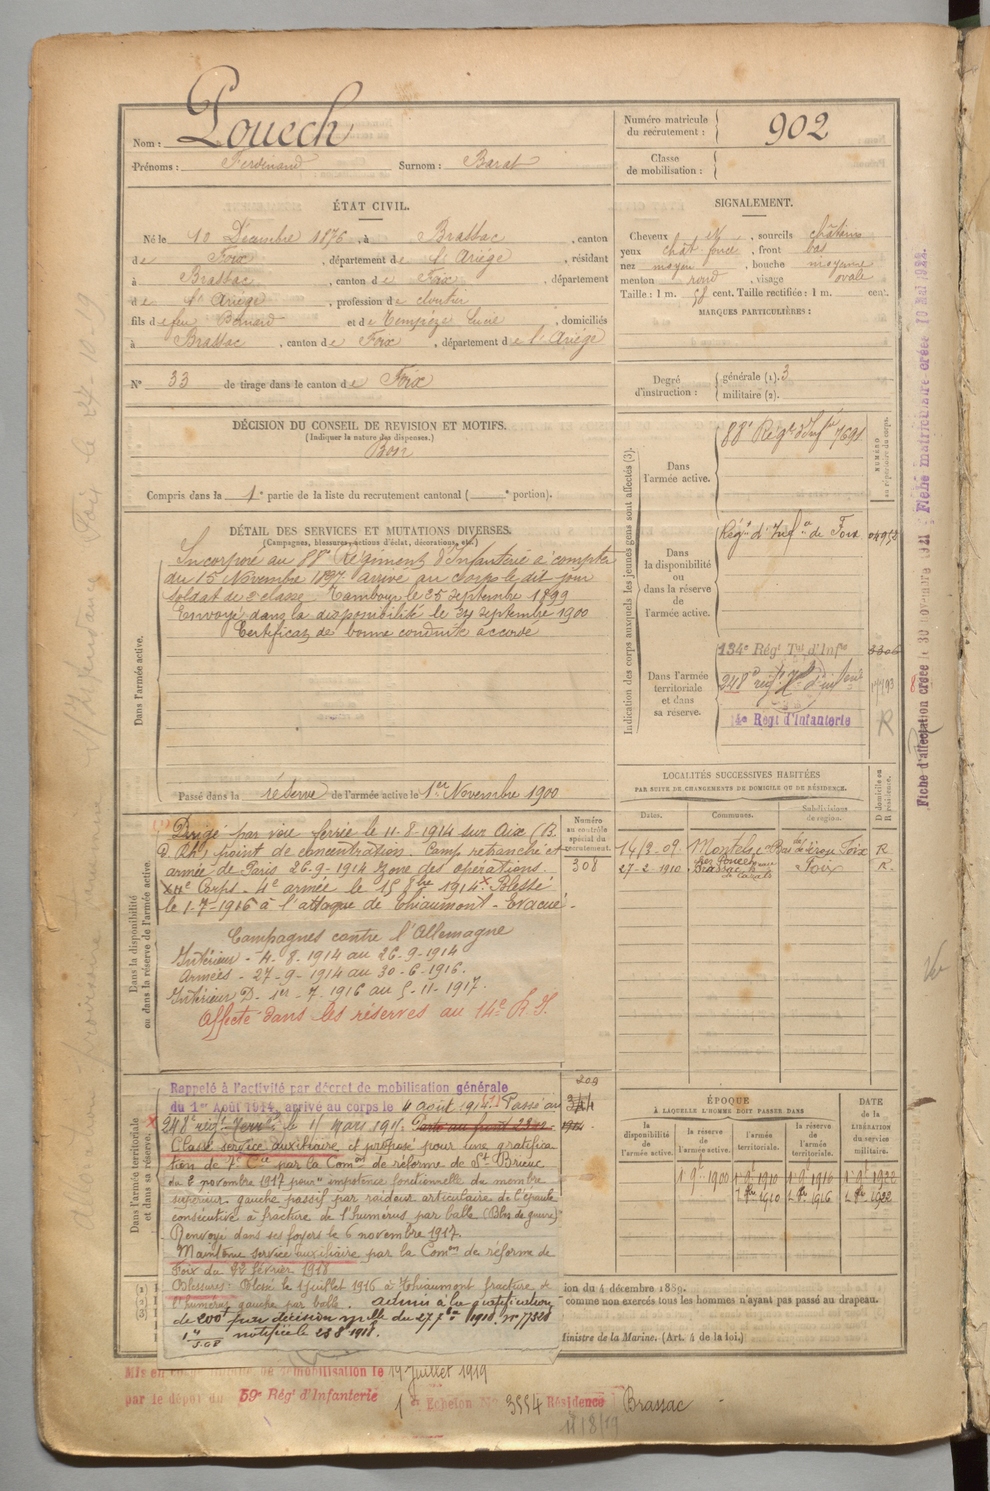 Nom : Pouech
Prénoms : Ferdinand Surnom : Barat
Numéro matricule du recrutement : 902
Classe de mobilisation :
ÉTAT CIVIL.
Né le 10 Décembre 1876, à Brassac, canton
de Foix, département de l'Ariège, résidant
à Brassac, canton de Foix, département
de l'Ariège, profession de cloutier
fils de feu Bernard et de Lucie, domiciliés
à Brassac, canton de Foix, département de l'Ariège
N° 33 de tirage dans le canton de Foix
SIGNALEMENT.
Cheveux et, sourcils châtains
yeux chât foncé, front bas
nez moyen, bouche moyenne
menton rond, visage ovale
Taille : 1 m. 58 cent. Taille rectifiée : 1 m. cent.
MARQUES PARTICULIÈRES :
Degré d'instruction : générale (1). 3
militaire (2).
DÉCISION DU CONSEIL DE REVISION ET MOTIFS.
(Indiquer la nature des dispenses.)
Bon
Compris dans la 1e partie de la liste du recrutement cantonal ( portion).
DÉTAIL DES SERVICES ET MUTATIONS DIVERSES.
(Campagnes, blessures, actions d'éclat, décorations, etc.)
Dans l'armée active.
Incorporé au 88e Régiment d'Infanterie à compter
du 15 Novembre 1897 arrivé au corps le dit jour
soldat de 2e classe. Tambour le 25 septembre 1899
Envoyé dans la disponibilité le septembre 1900
Certificat de bonne conduite accordé
Passé dans la réserve de l'armée active le 1er Novembre 1900
Indication des corps auxquels les jeunes gens sont affectés (3).
NUMÉRO au répertoire du corps.
Dans l'armée active. 88e Régt d'Infie 7691
Dans la disponibilité ou dans la réserve de l'armée active. Régt d'Infie de Foix
Dans l'armée territoriale et dans sa réserve. 134e Régt Tal d'Infie
248e régt d'infanterie
14e Régt d'Infanterie
R
LOCALITÉS SUCCESSIVES HABITÉES
PAR SUITE DE CHANGEMENTS DE DOMICILE OU DE RÉSIDENCE.
Dates. Communes. Subdivisions de région. D domicile ou R résidence.
14/3-09 Foix R
27-2 1910 Brassac Foix R.
Numéro au contrôle spécial du recrutement.
308
Dans la disponibilité ou dans la réserve de l'armée active.
Dirigé par voie ferrée le 11-8-1914 sur Aix (B.
d. Rh.) point de concentration. Camp retranché et
armée de Paris 26-9-1914 zone des opérations.
Corps - 4e armée le 15 8bre 1914. Blessé
le 1-7-1916 à l'attaque de Thiaumont - Evacué.
Campagnes contre l'Allemagne
Intérieur - 4. 8. 1914 au 26-9-1914
Armées - 27-9-1914 au 30-6-1916.
Intérieur D. 1er - 7. 1916 au 5-11-1917.
Affecté dans les réserves au 14e R. I.
Dans l'armée territoriale et dans sa réserve.
Rappelé à l'activité par décret de mobilisation générale
du 1er Août 1914, arrivé au corps le 4 août 1914. Passé au
248e régt le 11 mars 1916.
209
Classé service auxiliaire et proposé pour une gratifica-
tion de 7e Cie par la Comon de réforme de St Brieuc
du 2 novembre 1917 pour "impotence fonctionnelle du membre
supérieur gauche passif par raideur articulaire de l'épaule
consécutive à fracture de l'humérus par balle (Bles. de guerre)
Renvoyé dans ses foyers le 6 novembre 1917.
Maintenu service auxiliaire par la Comon de réforme de
Foix du 22 février 1918
Blessures : Blessé le 1 juillet 1916 à Thiaumont fracture de
l'humérus gauche par balle. admis à la gratification
de 200f par décision mielle du 27 1918. n° 77520
notifiée le 23 8 1918.
ÉPOQUE
À LAQUELLE L'HOMME DOIT PASSER DANS
la disponibilité de l'armée active.
la réserve de l'armée active.
l'armée territoriale.
la réserve de l'armée territoriale.
DATE de la LIBÉRATION du service militaire.
1 9bre 1900 1 9bre 1910 1 9bre 1916 1 9bre 1922
1 8bre 1910 1 8bre 1916 1 8bre 1922
ion du 4 décembre 1889.
comme non exercés tous les hommes n'ayant pas passé au drapeau.
Ministre de la Marine. (Art. 4 de la loi.)
Mis en congé de démobilisation le 19 Juillet 1919
par le dépôt du 59e Régt d'Infanterie
1er Echelon N° 3554 Résidence Brassac
11/8/19
Fiche d'affectation créée le 30 novembre 1921 ; Fiche matriculaire créée 10 Mai 1922